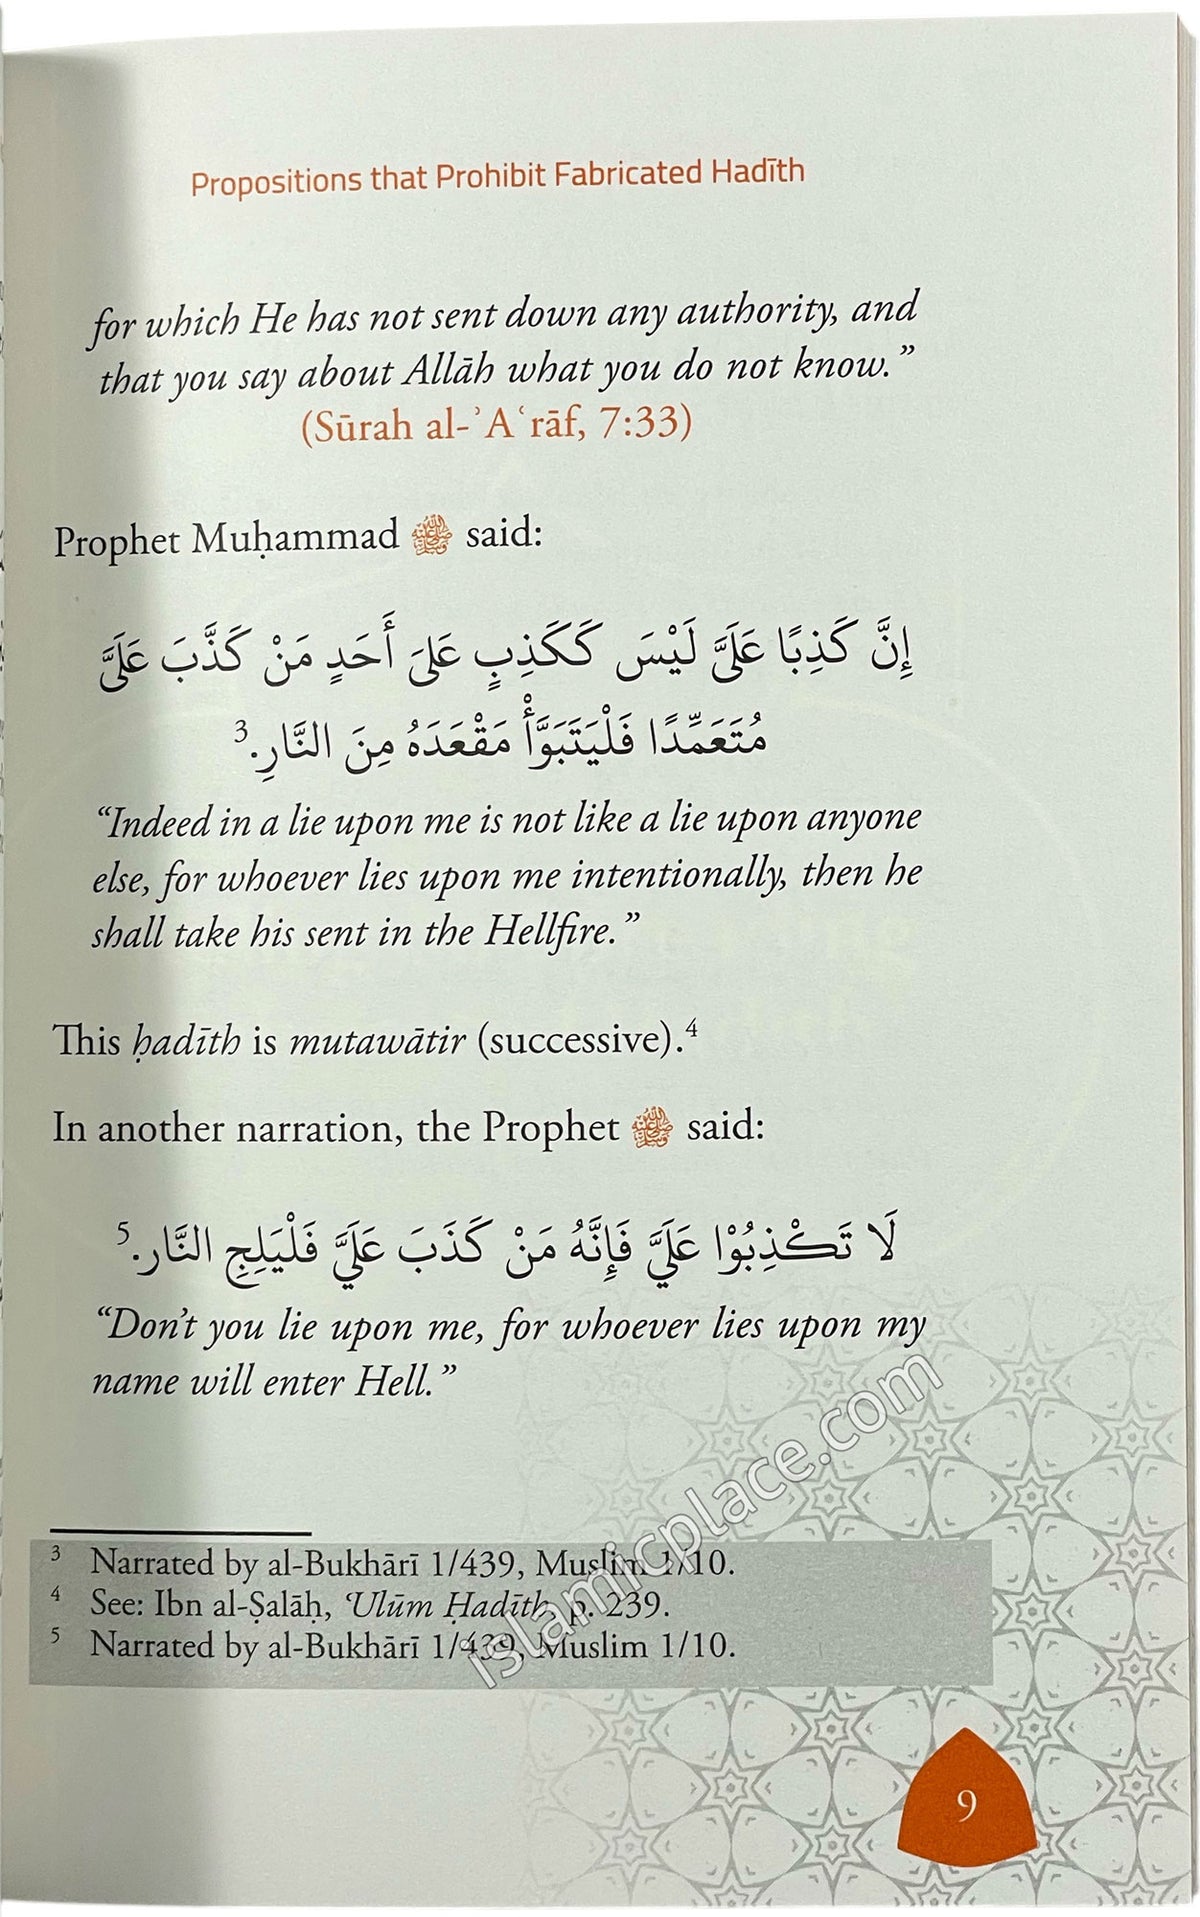 Propositions that Prohibit Fabricated Hadīth
for which He has not sent down any authority, and
that you say about Allāh what you do not know.”
(Sūrah al-ʾAʿrāf, 7:33)
Prophet Muḥammad ﷺ said:
إِنَّ كَذِبًا عَلَيَّ لَيْسَ كَكَذِبٍ عَلىَ أَحَدٍ مَنْ كَذَّبَ عَلَيَّ
مُتَعَمِّدًا فَلْيَتَبَوَّأْ مَقْعَدَهُ مِنَ النَّارِ.³
“Indeed in a lie upon me is not like a lie upon anyone
else, for whoever lies upon me intentionally, then he
shall take his sent in the Hellfire.”
This ḥadīth is mutawātir (successive).⁴
In another narration, the Prophet ﷺ said:
لَا تَكْذِبُوْا عَلَيَّ فَإِنَّهُ مَنْ كَذَبَ عَلَيَّ فَلْيَلِجِ النَّار.⁵
“Don’t you lie upon me, for whoever lies upon my
name will enter Hell.”
³ Narrated by al-Bukhārī 1/439, Muslim 1/10.
⁴ See: Ibn al-Ṣalāḥ, ʿUlūm Ḥadīth, p. 239.
⁵ Narrated by al-Bukhārī 1/439, Muslim 1/10.
islamicplace.com
9